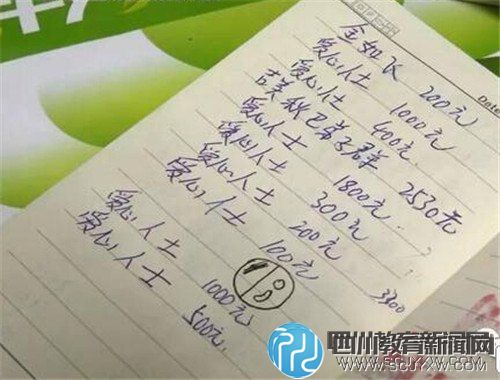 金如飞 200元
爱心人士 1000元
爱心人士 400元
吉美 弟子群 2530元
爱心人士 1800元
爱心人士 300元
爱心人士 200元
爱心人士 100元
3300
爱心人士 1000元
爱心人士 500元
四川教育新闻网
WWW.SCJYXW.COM